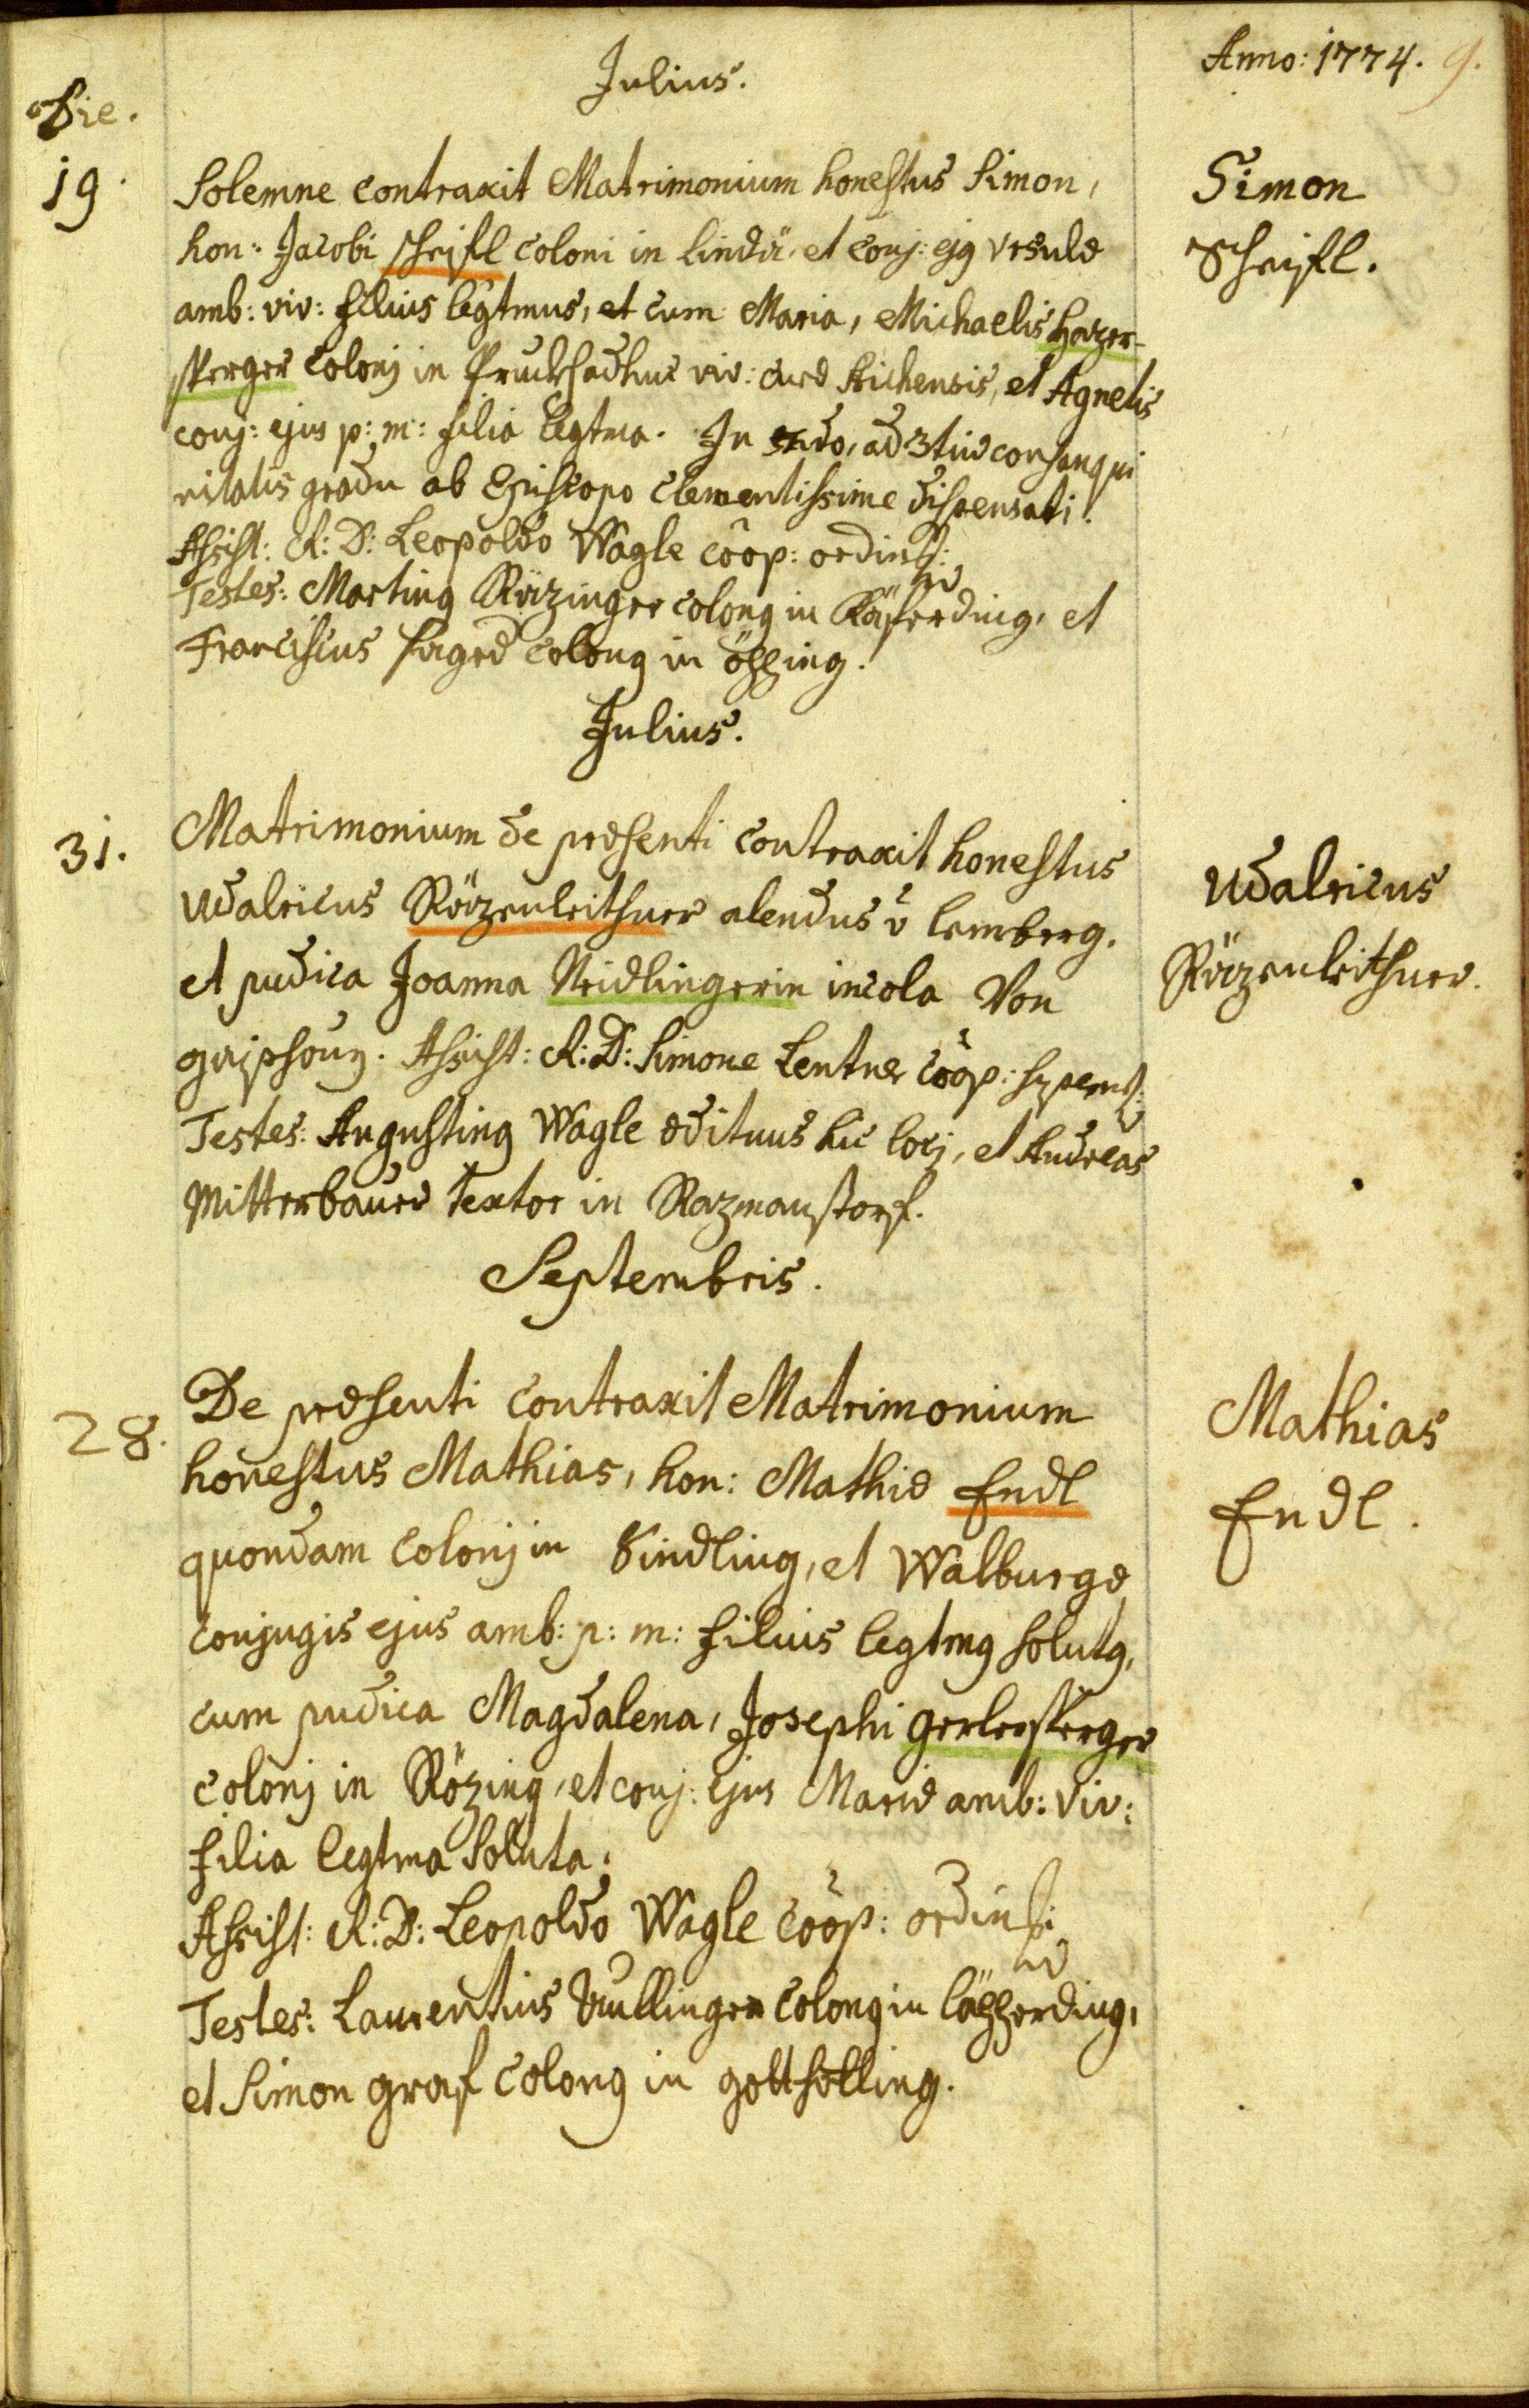 Julius.
Anno: 1774. 9.
Die.
19.
Solemne contraxit Matrimonium honestus Simon,
Simon
hon: Jacobi scheifl coloni in lindä, et conj: ejg Vrsulæ
Scheifl.
amb: viv: filius legtmus, et cum Maria, Michaelis Hazer-
sperger colonj in adhuc viv: curæ Aichensis, et Agnetis
conj: ejus p: m: filia legtma. In 2do, ad 3tiū consangui
nitatis gradu ab Episcopo clementissime dispensati.
Assist: A: D: Leopoldo Wagle coop: ordinsß:
Testes: Marting Räzinger colong in Käferding, et
Franciscus colong in ößing.
Julius.
31.
Matrimonium de præsenti contraxit honestus
Udalricus
Udalricus Räzenleithner alendus v lemberg.
et pudica Joanna Neidlingerin incola Von
Räzenleithner.
Assist: A: D: Simone Lentner coop:
Testes: Augusting Wagle ædituus hic locj, et Andreas
Mitterbauer textor in Razmanstorf.
Septembris.
28.
De præsenti contraxit Matrimonium
Mathias
honestus Mathias, hon: Mathiæ Endl
Endl.
quondam colonj in Kindling, et Walburgæ
conjugis ejus amb: p: m: filius legtmg solutg,
cum pudica Magdalena, Josephi gerlersperger
colonj in Rözing, et conj: ejus Mariæ amb: viv:
filia legtma Soluta.
Assist: A: D: Leopoldo Wagle coop: ordinß:
Testes: Laurentius colong in läßerding,
et Simon graf colong in gottholling.